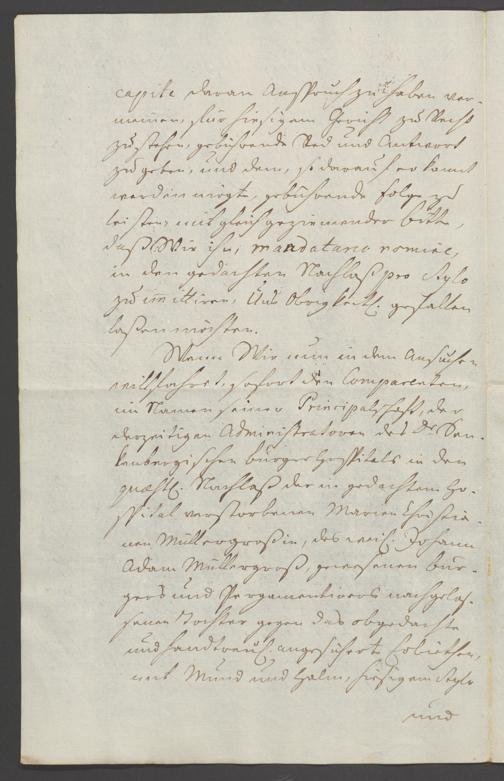 capite daran Anspruch zu haben ver-
meinen, für hiesigem Gericht zu Recht
zu stehen, gebührende Red und Antwort
zu geben, und dem, so darauf erkannt
werden mögte, gebührende Folge zu
leisten, mit gleich geziemender Bitte,
daß Wir ihn, mandatario nomine,
in den gedachten Nachlaß pro Stylo
zu immittiren, Uns Obrigkeitl. gefallen
laßen möchten.
Wann Wir nun in dem Ansuchen
willfahret, sofort den Comparenten,
im Namen seiner Principalschaft, der
derzeitigen Administratoren des Dr. Sen-
kenbergischen Bürger Hospitals in den
quaestl. Nachlaß der in gedachtem Ho-
spital verstorbenen Marien Christia-
nen Müllergroßin, des weil. Johann
Adam Müllergroß, gewesenen Bur-
gers und Pergamentirers nachgelas-
senen Tochter gegen das obgedachte
und handtreul. angeführte Erbiethen,
mit Mund und Halm, hiesigem Stylo
und